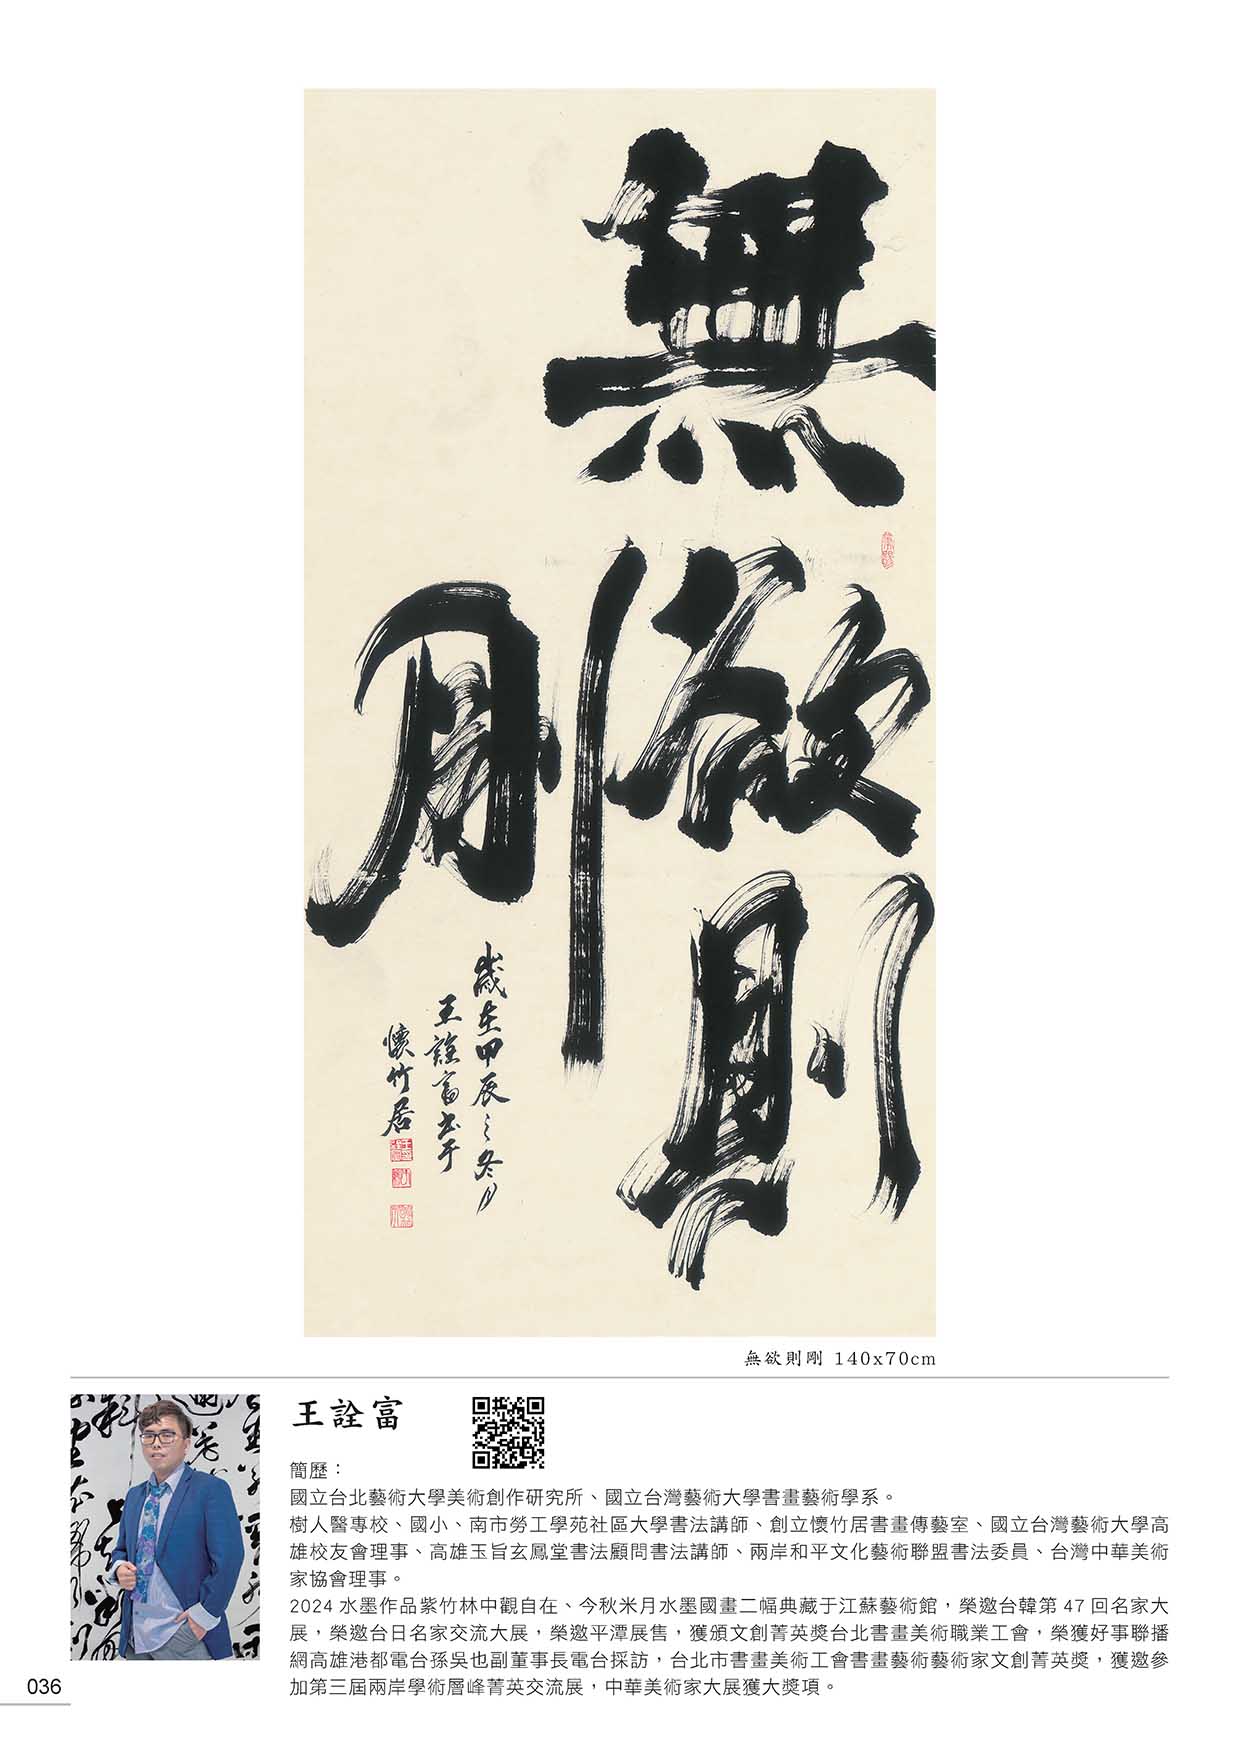 無欲則
剛
歲在甲辰之冬月
王詮富書于
懷竹居
無欲則剛 140x70cm
王詮富
簡歷：
國立台北藝術大學美術創作研究所、國立台灣藝術大學書畫藝術學系。
樹人醫專校、國小、南市勞工學苑社區大學書法講師、創立懷竹居書畫傳藝室、國立台灣藝術大學高
雄校友會理事、高雄玉旨玄鳳堂書法顧問書法講師、兩岸和平文化藝術聯盟書法委員、台灣中華美術
家協會理事。
2024 水墨作品紫竹林中觀自在、今秋米月水墨國畫二幅典藏于江蘇藝術館，榮邀台韓第 47 回名家大
展，榮邀台日名家交流大展，榮邀平潭展售，獲頒文創菁英獎台北書畫美術職業工會，榮獲好事聯播
網高雄港都電台孫吳也副董事長電台採訪，台北市書畫美術工會書畫藝術藝術家文創菁英獎，獲邀參
加第三屆兩岸學術層峰菁英交流展，中華美術家大展獲大獎項。
036